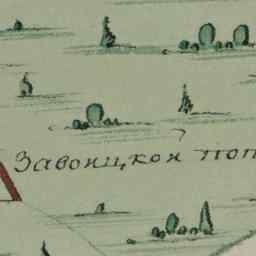 Завониц,кои поп